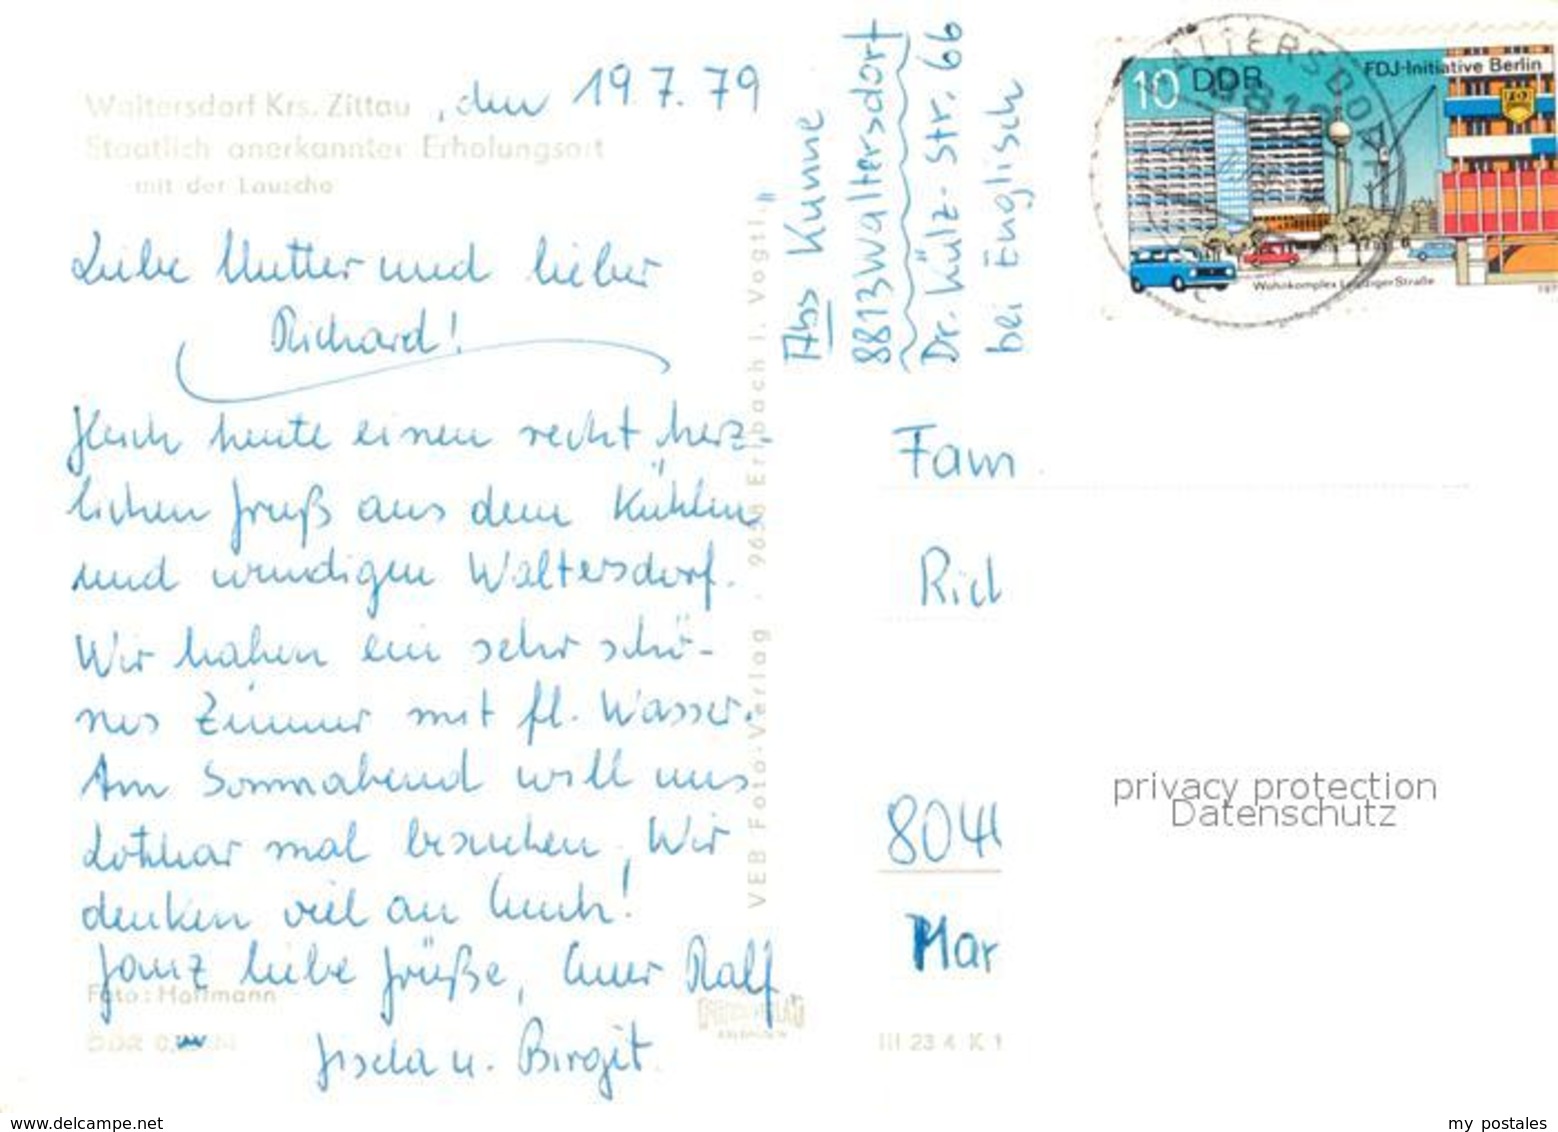 Waltersdorf Krs. Zittau , den 19.7.79
Staatlich anerkannter Erholungsort
mit der Lausche
Liebe Mutter und lieber
Richard!
Euch heute einen recht herz-
lichen Gruß aus dem Kühlen
und windigen Waltersdorf.
Wir haben ein sehr schö-
nes Zimmer mit fl. Wasser.
Am Sonnabend will uns
Lothar mal besuchen. Wir
denken viel an Euch!
Ganz liebe Grüße, Euer Ralf
Gisela u. Birgit
Foto: Hoffmann
DDR
VEB Foto-Verlag · 9658 Erlbach i. Vogtl.
Abs Kunne
8813 Waltersdorf
Dr. Külz-Str. 66
bei Englisch
10 DDR
FDJ-Initiative Berlin
Wohnkomplex Leipziger Straße
WALTERSDORF
Fam
Rich
8044
Mar
III 23 4 K 1
privacy protection
Datenschutz
www.delcampe.net
my postales